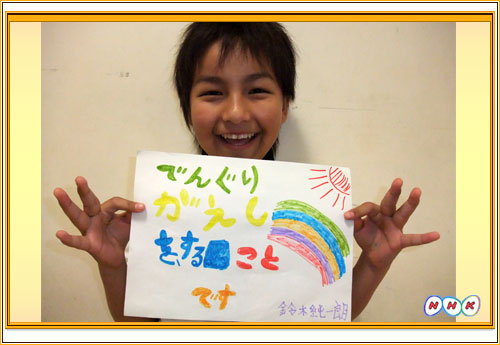 でんぐり
がえし
をする こと
です
鈴木純一郎
NHK